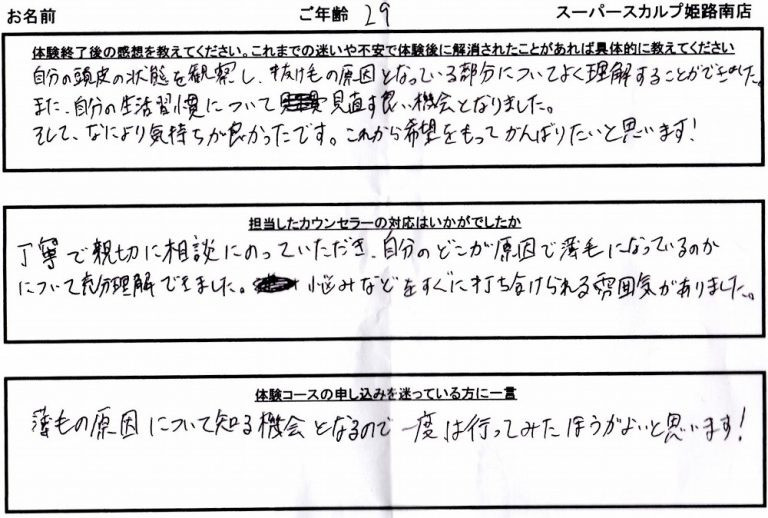 お名前 ご年齢 29 スーパースカルプ姫路南店
体験終了後の感想を教えてください。これまでの迷いや不安で体験後に解消されたことがあれば具体的に教えてください
自分の頭皮の状態を観察し、抜け毛の原因となっている部分についてよく理解することができました。
また、自分の生活習慣について見直す良い機会となりました。
そして、なにより気持ちが良かったです。これから希望をもってがんばりたいと思います！
担当したカウンセラーの対応はいかがでしたか
丁寧で親切に相談にのっていただき、自分のどこが原因で薄毛になっているのか
について充分理解できました。悩みなどをすぐに打ち分けられる雰囲気がありました。
体験コースの申し込みを迷っている方に一言
薄毛の原因について知る機会となるので一度は行ってみたほうがよいと思います！